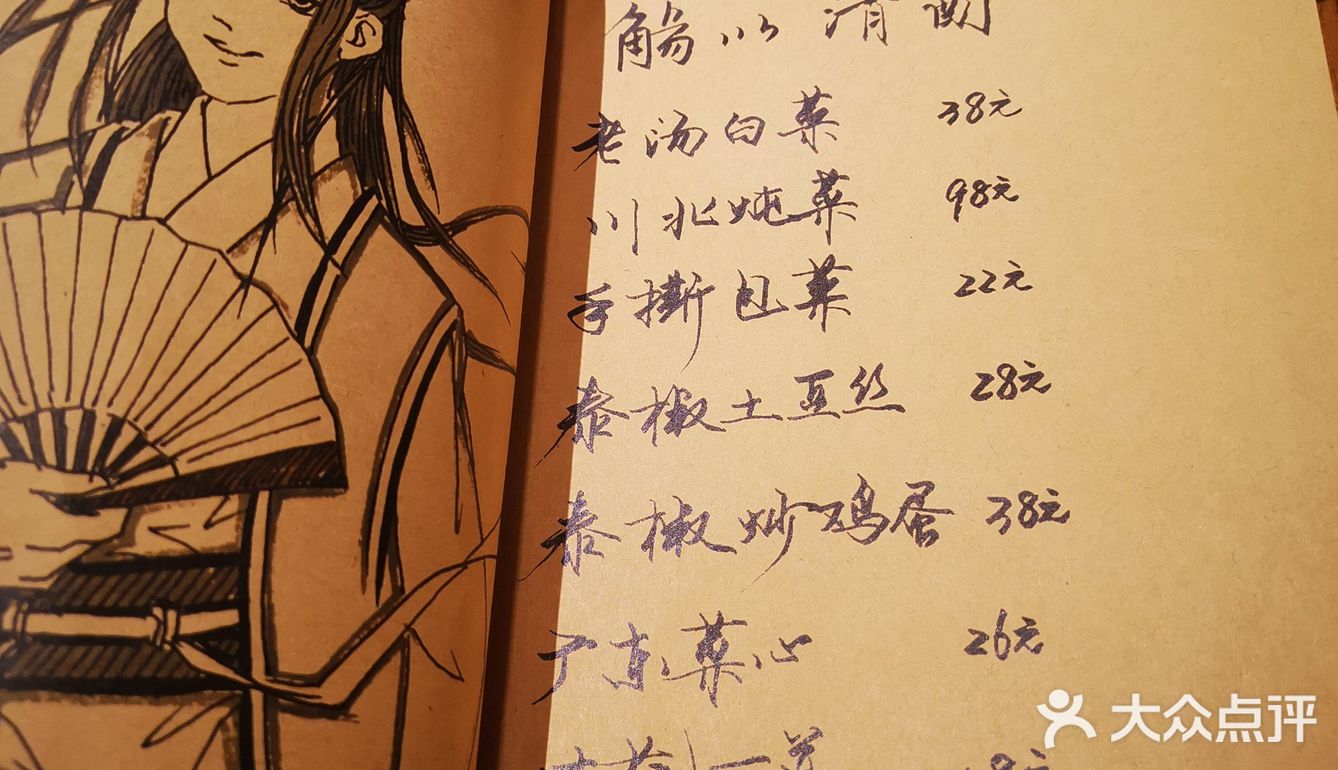 觞以清酌
老汤白菜 38元
川北炖菜 98元
手撕包菜 22元
秦椒土豆丝 28元
秦椒炒鸡蛋 38元
广东菜心 26元
8元
大众点评